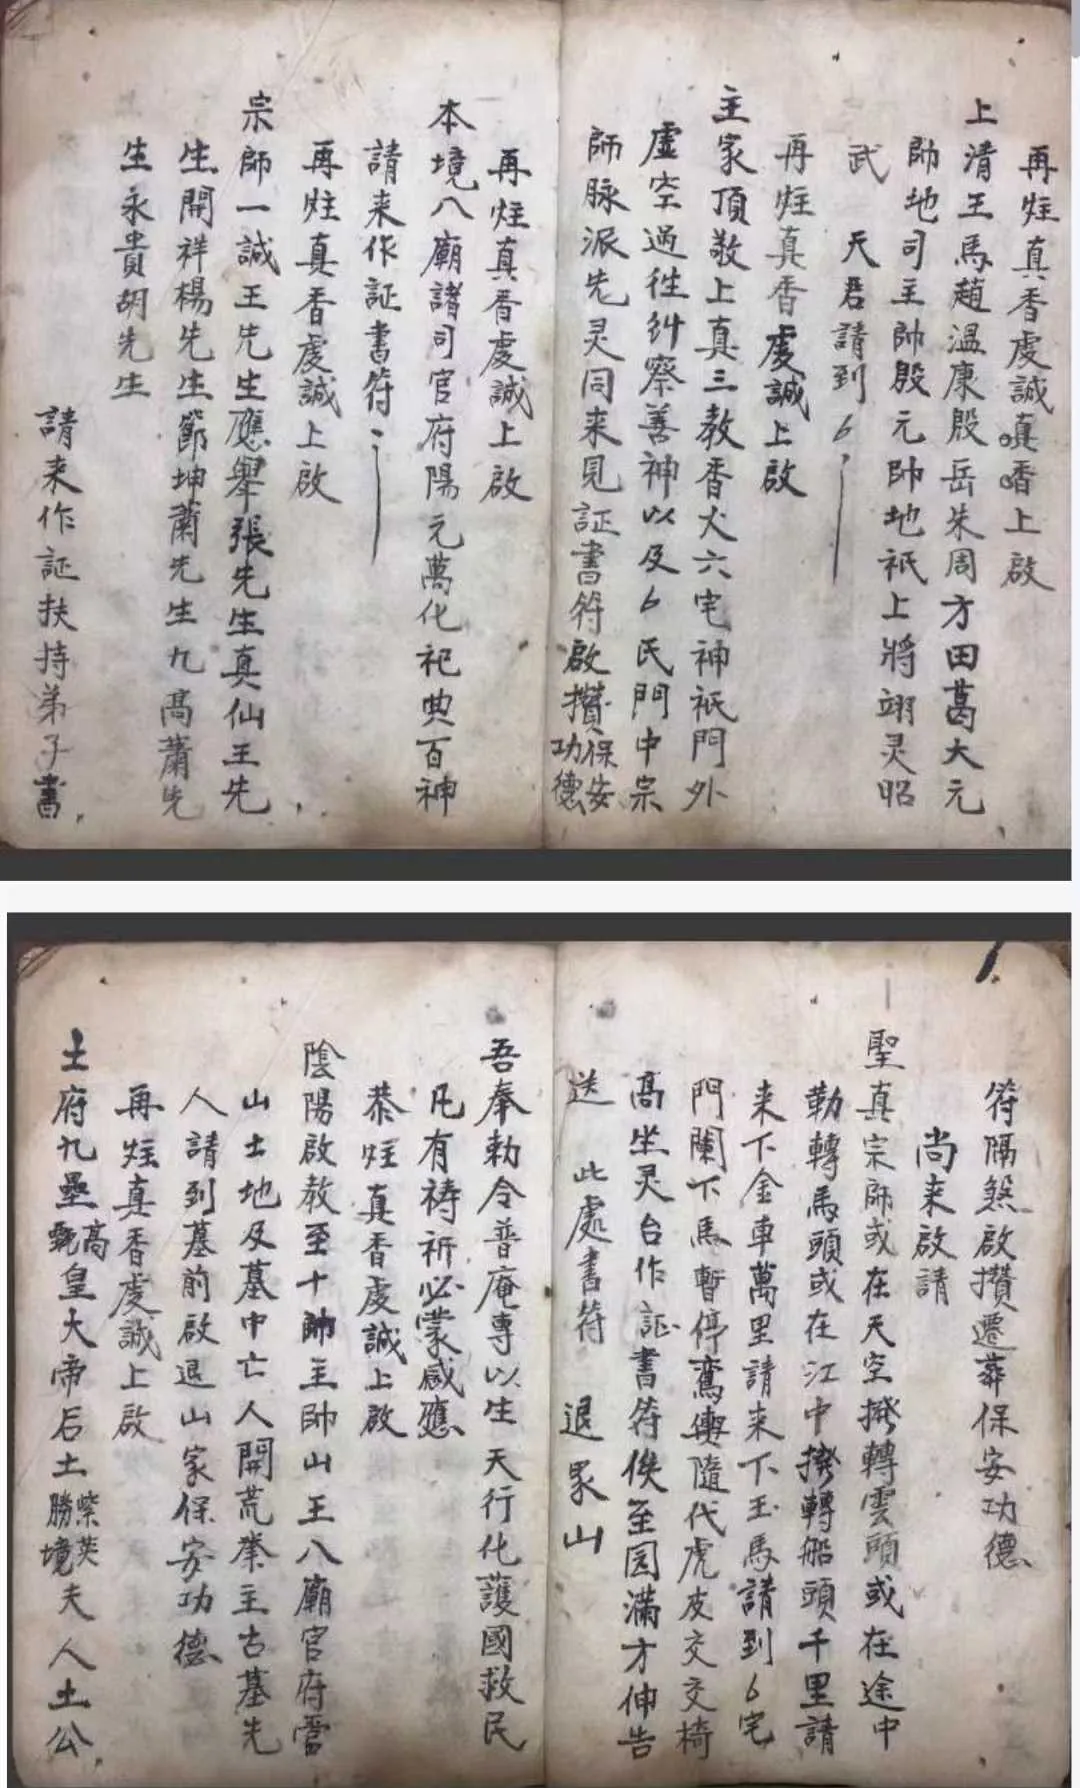 再炷真香虔誠真香上啟
上清王馬趙溫康殷岳朱周方田葛大元
帥地司主帥殷元帥地祇上將翊灵昭
武 天君請到6
再炷真香虔誠上啟
主家頂敬上真三教香火六宅神祇門外
虛空過徃糾察善神以及6民門中宗
師脉派先灵同来見証書符啟攢保安功德
再炷真香虔誠上啟
本境八廟諸司官府陽元萬化祀典百神
請来作証書符
再炷真香虔誠上啟
宗師一誠王先生應舉張先生真仙王先
生開祥楊先生節坤蕭先生九高蕭先
生永貴胡先生
請来作証扶持弟子書
符隔煞啟攢遷葬保安功德
尚来啟請
聖真宗師或在天空撥轉雲頭或在途中
勒轉馬頭或在江中撥轉船頭千里請
来下金車萬里請来下玉馬請到6宅
門闌下馬暫停鸞輿隨代虎皮交交椅
高坐灵台作証書符俟至园滿才伸告
送 此處書符 退冢山
吾奉勅令普庵專以生天行化護國救民
凡有禱祈必蒙感應
恭炷真香虔誠上啟
陰陽啟教至十帥主帥山王八廟官府當
山土地及墓中亡人開荒業主古墓先
人請到墓前啟退山家保安功德
再炷真香虔誠上啟
土府九壘高皇大帝后土紫英勝境夫人土公